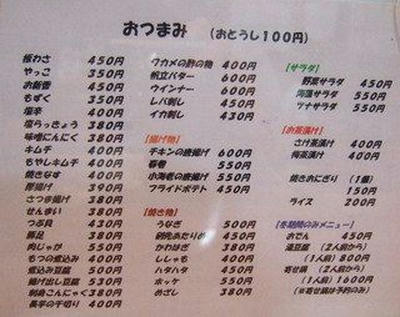 おつまみ (おとうし100円)
板わさ 450円
やっこ 350円
お新香 450円
もずく 350円
塩辛 400円
塩らっきょう 380円
味噌にんにく 380円
キムチ 400円
もやしキムチ 400円
焼きなす 400円
厚揚げ 390円
さつま揚げ 380円
ぜんまい 380円
つぶ貝 430円
豚足 380円
肉じゃが 550円
もつの煮込み 400円
煮込み豆腐 530円
揚げ出し豆腐 530円
刺身こんにゃく 380円
長芋の千切り 400円
ワカメの酢の物 400円
帆立バター 600円
ウインナー 600円
レバ刺し 450円
イカ刺し 430円
【揚げ物】
チキンの唐揚げ 600円
春巻 550円
小海老の唐揚げ 550円
フライドポテト 450円
【焼き物】
うなぎ 500円
朝鮮あたりめ 450円
かわはぎ 380円
ししゃも 400円
ハタハタ 450円
ホッケ 550円
めざし 380円
【サラダ】
野菜サラダ 450円
海藻サラダ 550円
ツナサラダ 550円
【お茶漬け】
さけ茶漬け 400円
梅茶漬け 400円
焼きおにぎり (1個)
150円
ライス 200円
【冬期間のみメニュー】
おでん 450円
湯豆腐 (2人前から)
(1人前) 800円
寄せ鍋 (2人前から)
(1人前) 1600円
(※寄せ鍋は予約のみ)